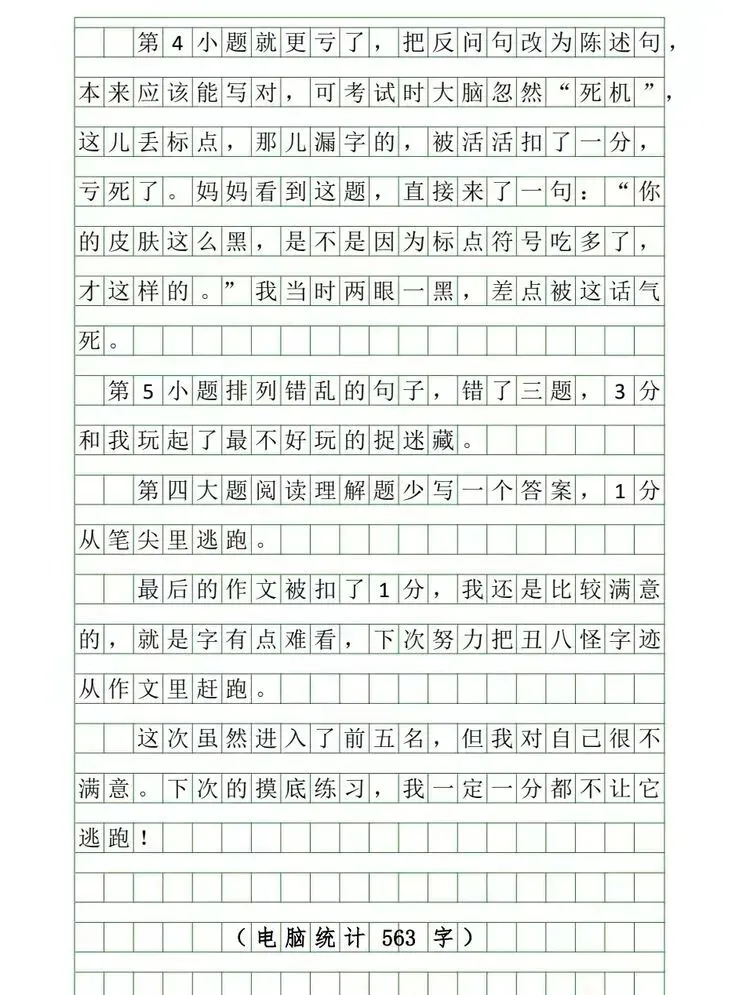 第4小题就更亏了，把反问句改为陈述句，
本来应该能写对，可考试时大脑忽然“死机”，
这儿丢标点，那儿漏字的，被活活扣了一分，
亏死了。妈妈看到这题，直接来了一句：“你
的皮肤这么黑，是不是因为标点符号吃多了，
才这样的。”我当时两眼一黑，差点被这话气
死。
第5小题排列错乱的句子，错了三题，3分
和我玩起了最不好玩的捉迷藏。
第四大题阅读理解题少写一个答案，1分
从笔尖里逃跑。
最后的作文被扣了1分，我还是比较满意
的，就是字有点难看，下次努力把丑八怪字迹
从作文里赶跑。
这次虽然进入了前五名，但我对自己很不
满意。下次的摸底练习，我一定一分都不让它
逃跑！
（电脑统计 563 字）